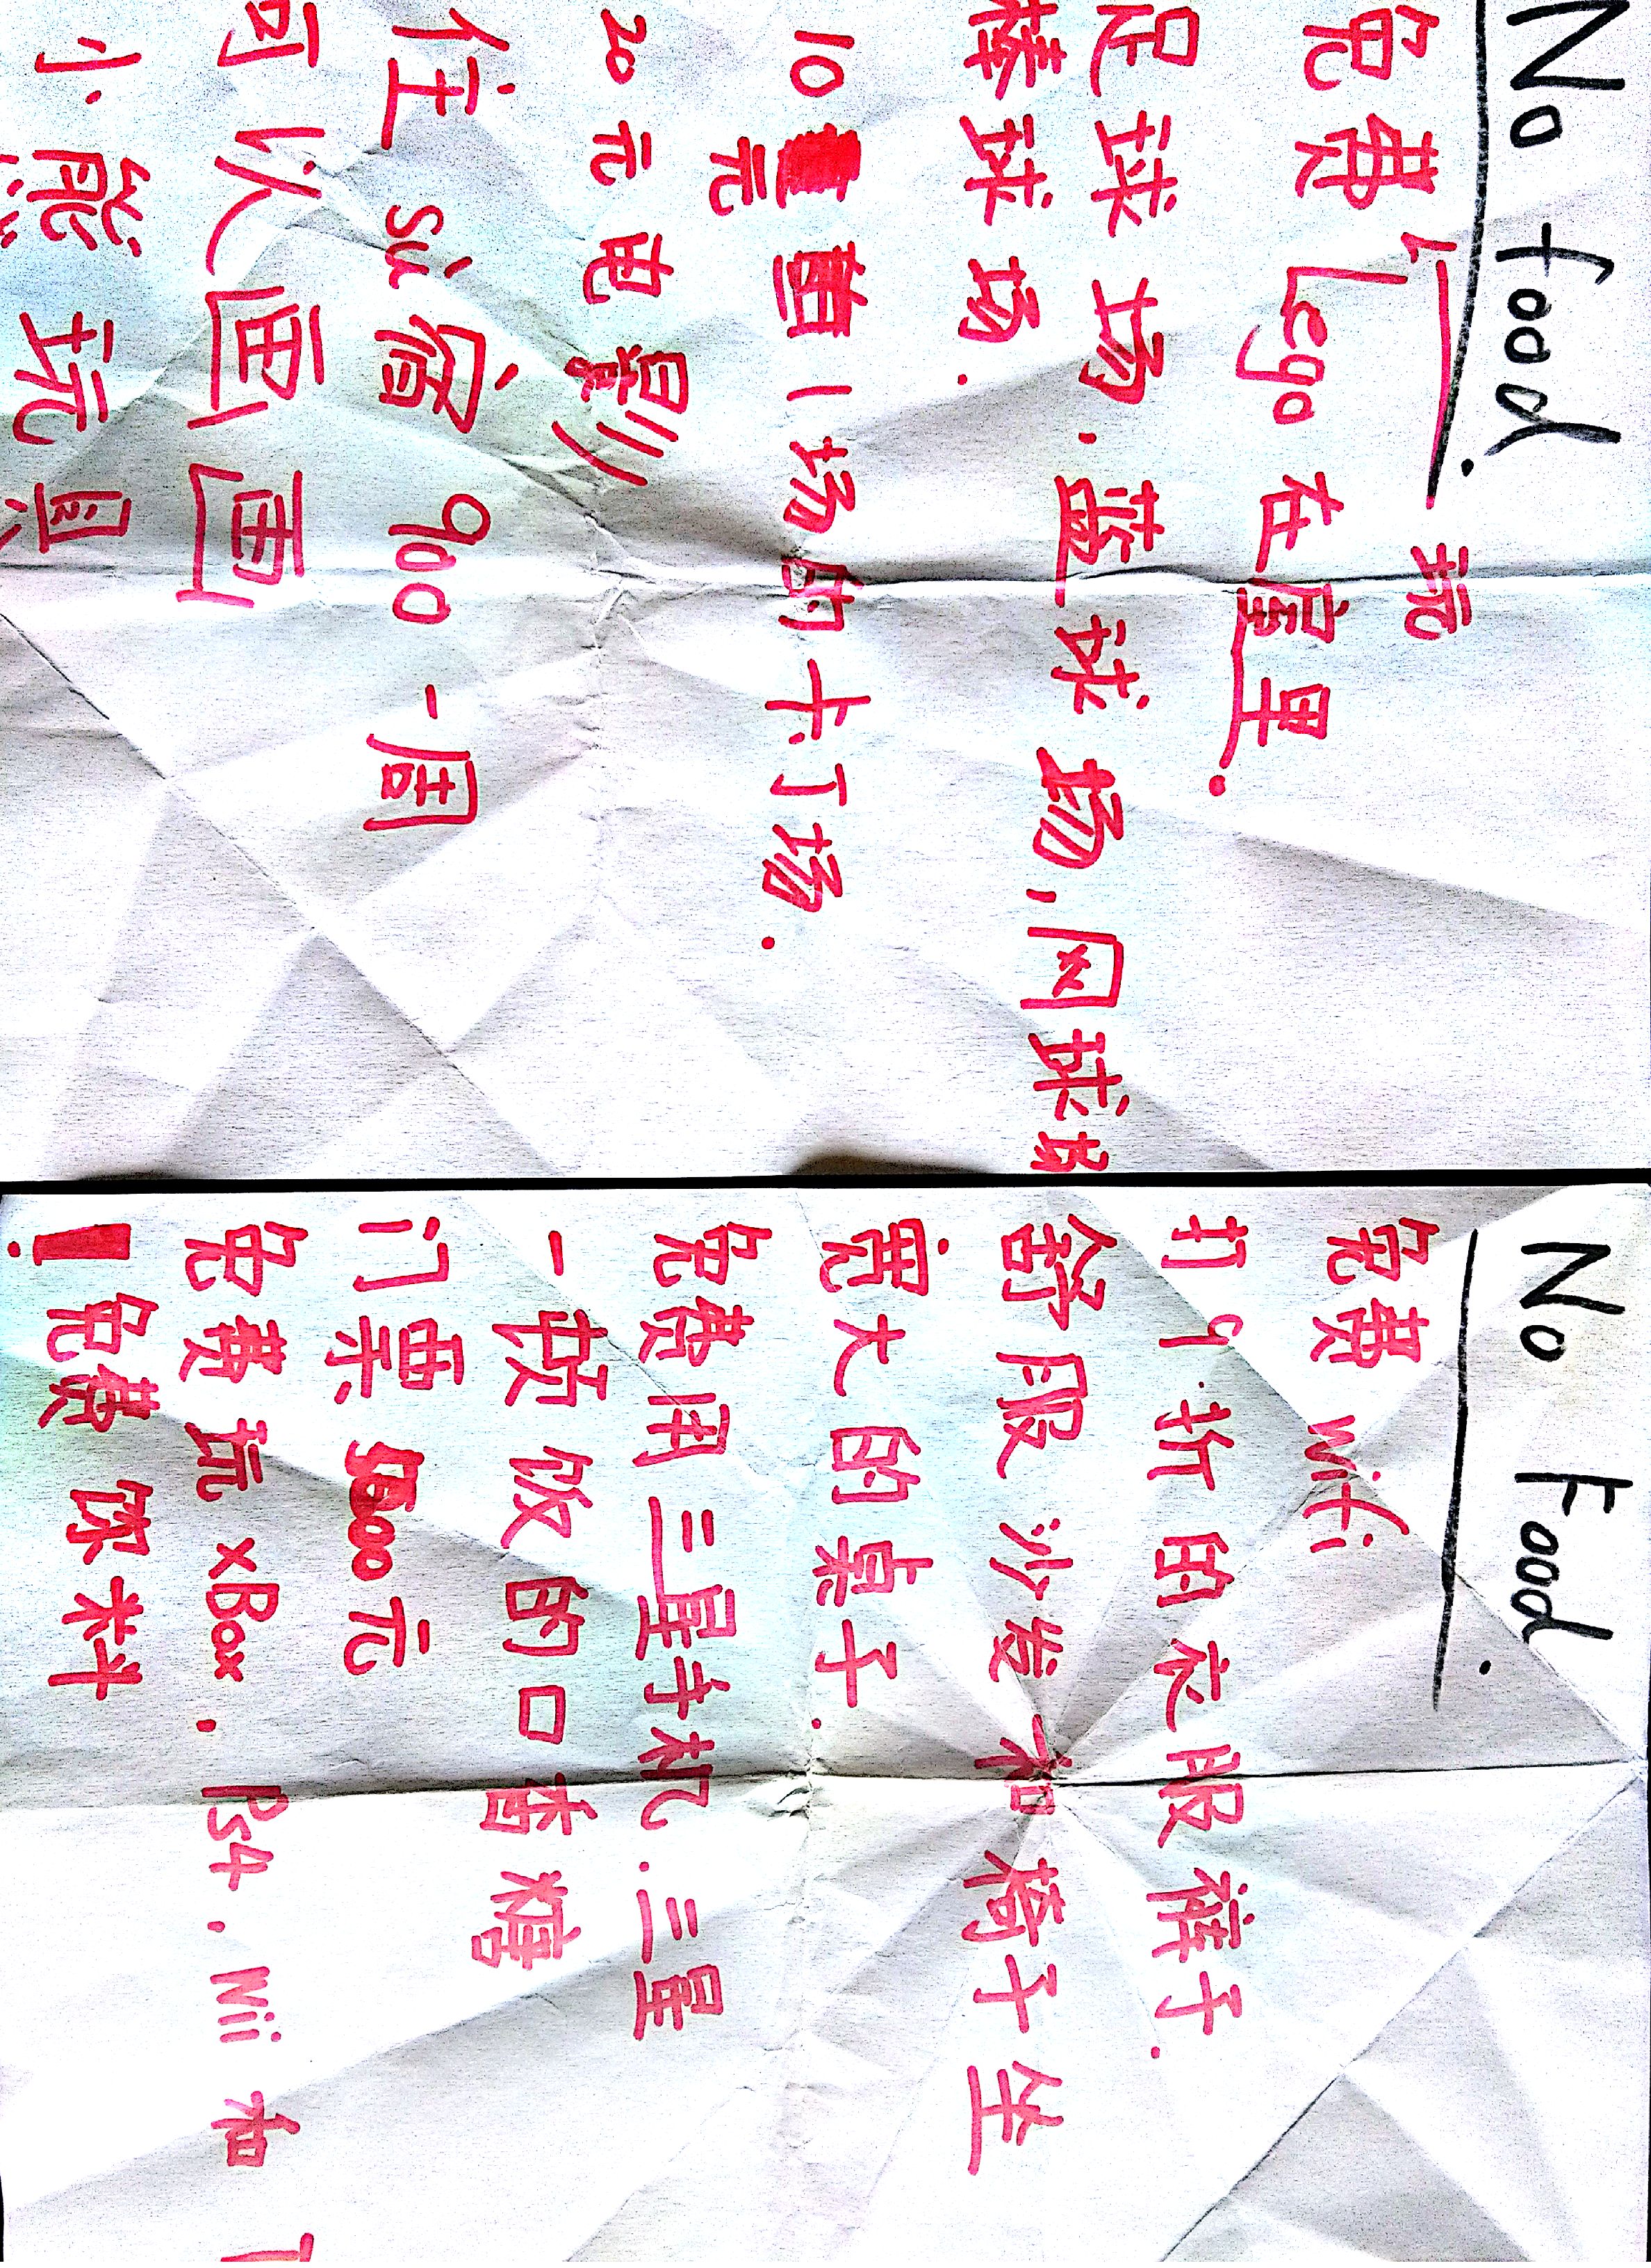 No food.
免费玩 Lego 在屋里.
足球场.蓝球场,网球场
棒球场.
10元 1场的卡丁场.
20元电影
住 sù 宿 900 一周
可以画画
小熊玩具
No Food.
免费 wifi
打9折的衣服裤子.
舒服沙发和椅子坐
宽大的桌子.
免费用三星手机.三星
一饭的口香糖
门票元
免费玩 xBox. Ps4, Wii 和
! 免费饮料